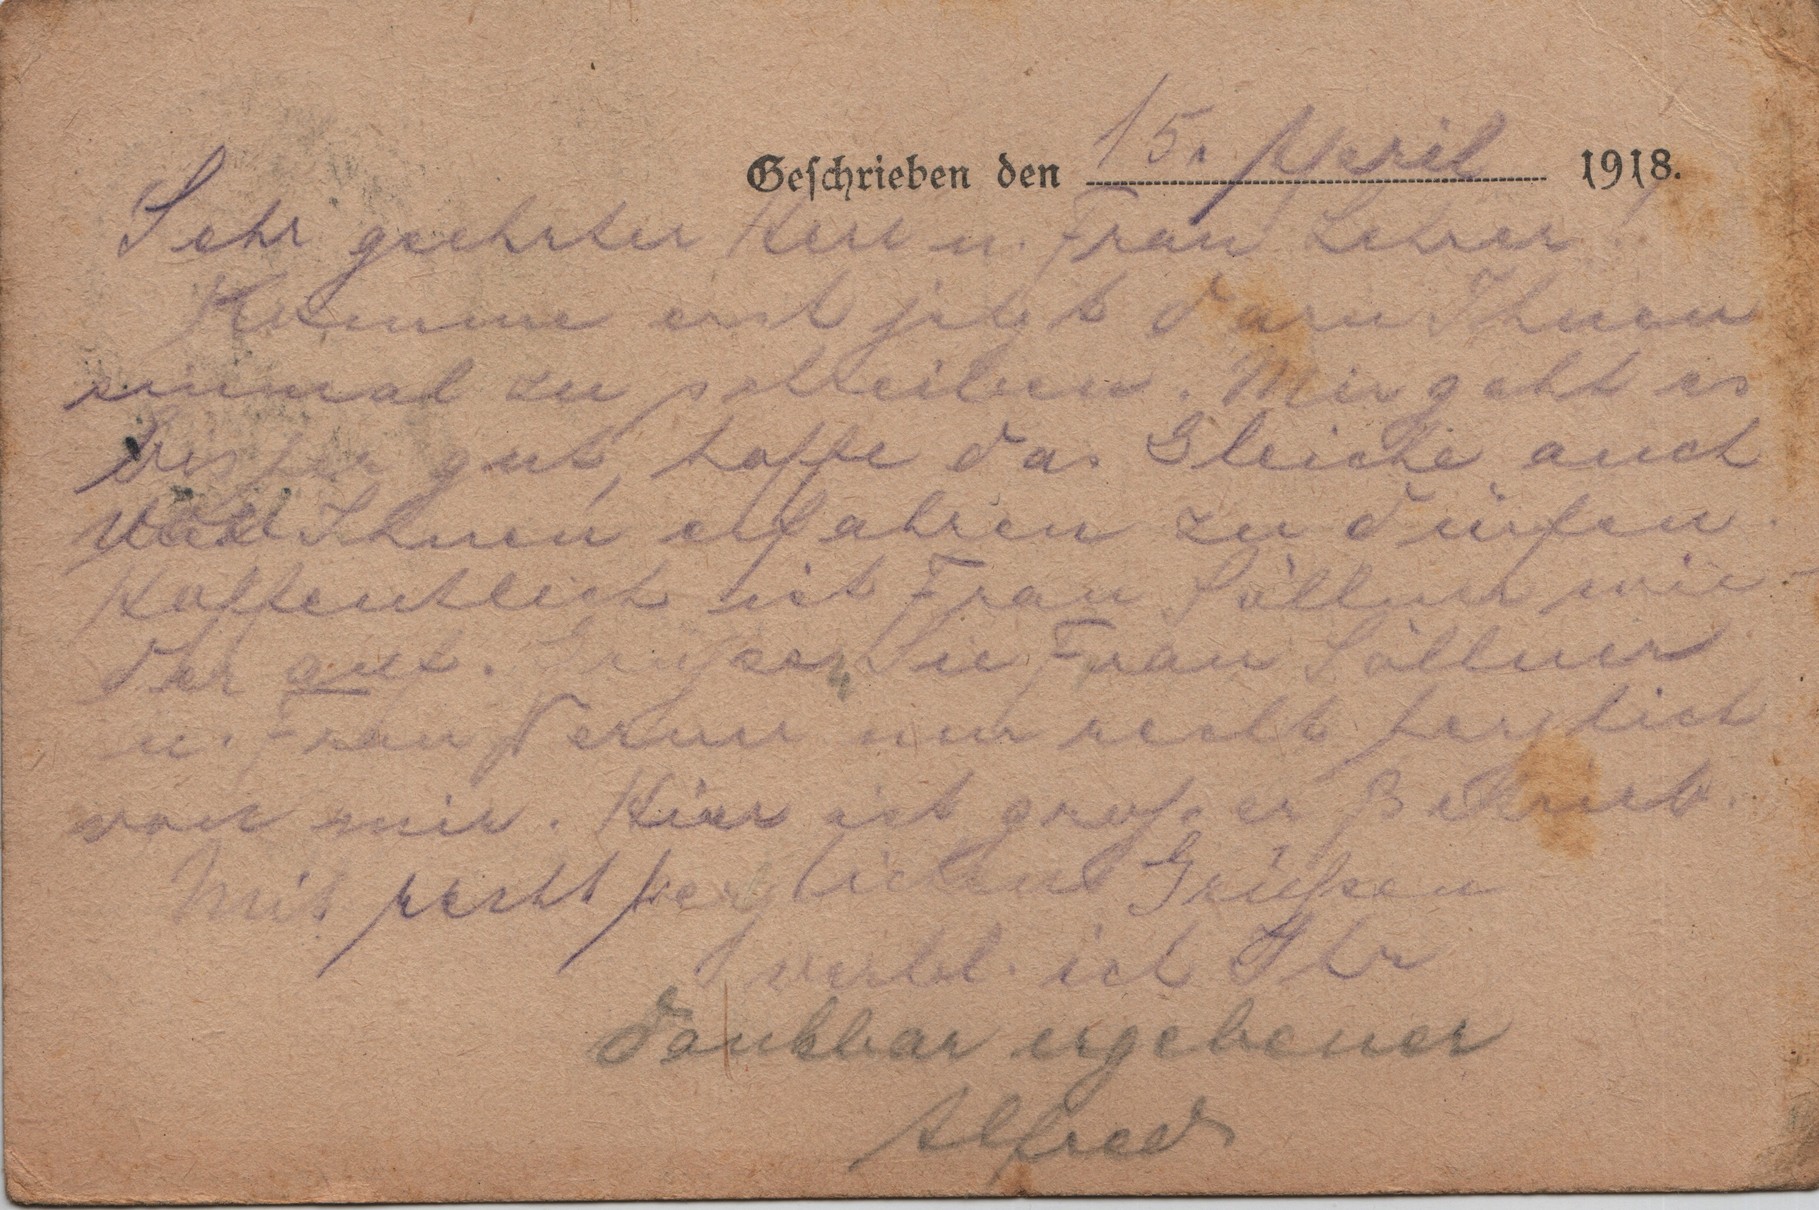 Geschrieben den 15. April 1918.
Sehr geehrter Herr u. Frau Lehrer!
Komme erst jetzt dazu Ihnen
einmal zu schreiben. Mir geht es
bisher gut, hoffe das Gleiche auch
von Ihnen erfahren zu dürfen.
Hoffentlich ist Frau Söllner wie-
der gut. Grüßen Sie Frau Söllner
u. Frau nur recht herzlich
von mir. Hier ist großer Betrieb.
Mit recht herzlichen Grüßen
verbl. ich Ihr
dankbar ergebener
Alfred